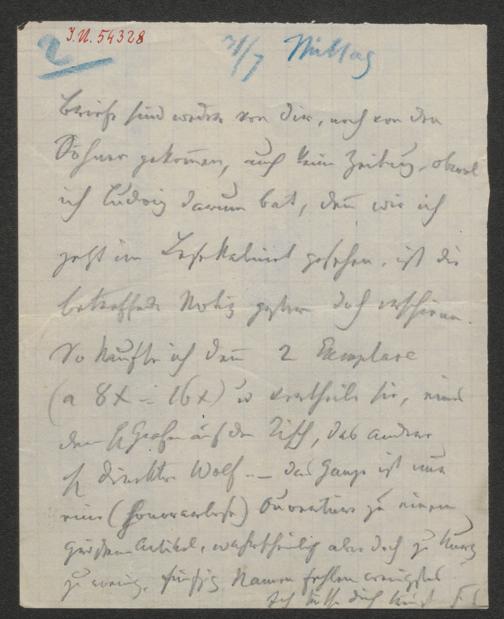 2
J.N. 54328
21/7 Mittag
Briefe sind weder von dir, noch von den
Söhnen gekommen, auch keine Zeitung, obwol
ich Ludwig darum bat, denn wie ich
jetzt im Lesekabinet gesehen, ist die
betreffende Notiz gestern doch erschienen.
So kaufte ich denn 2 Exemplare
(a 8x = 16x) u vertheile sie, eines
dem Grafen auf den Tisch, das andere
Direktor Wolf. — das Ganze ist nur
eine (honorarlose) Ouverture zu einem
größern Artikel, wahrscheinlich aber doch zu kurz
zu wenig, fünfzig Namen fehlen wenigstens
Ich küsse dich